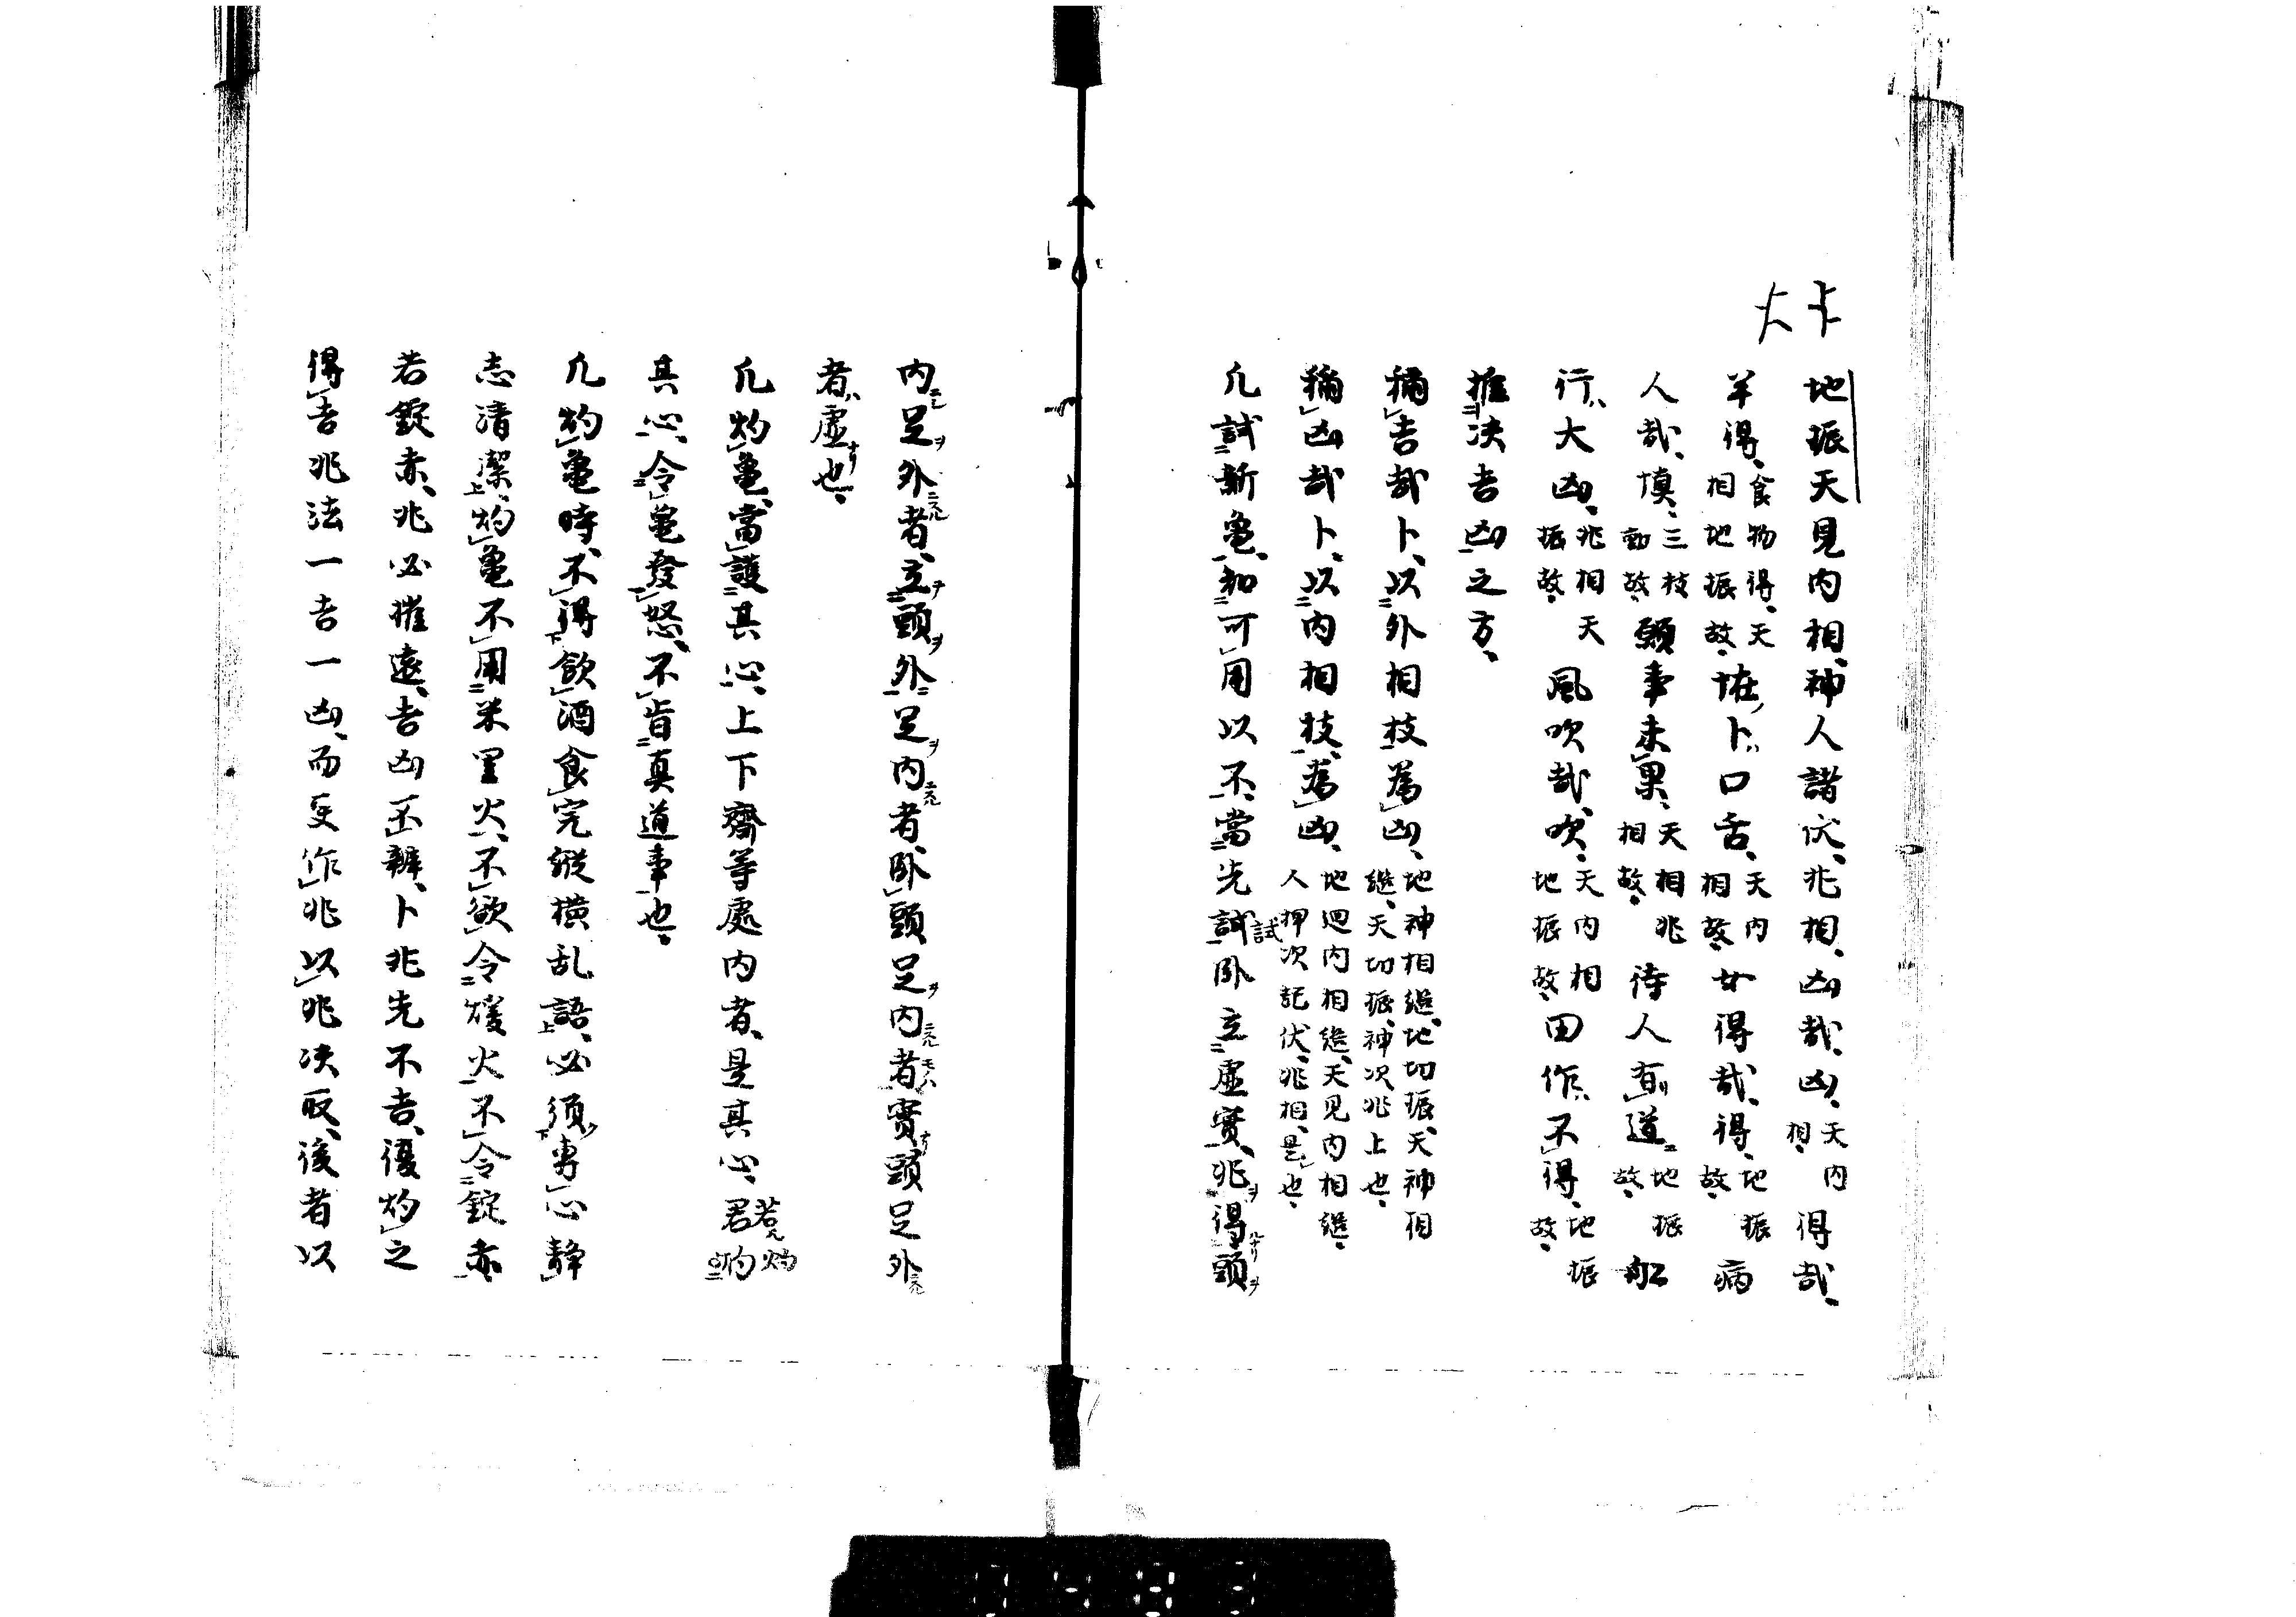 地振天見内相、神人諸伏、兆相、凶哉、凶、天内相、得哉、
半得、食物得、天相地振故、恠卜口舌、天内相故、女得哉、得、地振故、病
人哉、慎、三技動故、願事未果、天相兆相故、待人有道、地振故、船
行大凶、兆相天振故、風吹哉、吹、天内相地振故、田作不得、地振故、
推決吉凶之方、
稱吉哉卜、以外相技為凶、地神相継、地切振、天神相継、天切振、神次兆上也、
稱凶哉卜、以内相技、為凶、地廻内相継、天見内相継、人押次記伏、兆相、是也、
凡試新亀、知可用以不、當先試臥立虚實、兆ヲ得頭ヲ
内ニシ足ヲ外ニスル者、立テ頭ヲ外ニシ足ヲ内ニスル者、臥頭足ヲ内ニスル者モハ實ナリ頭足外ニスル
者ハ虚ナリ也、
凡灼亀、當護其心、上下齊等處内者、是其心、若灼
其心、令亀發怒、不肯真道事也、
凡灼亀時、不得飲酒食完縦横乱語、必須専心静
志清潔、灼亀不用米里火、不欲令煖火不令錠赤、
若錠赤、兆必摧遠、吉凶不辨、卜兆先不吉、復灼之
得吉兆法一吉一凶、而更作兆以兆決取、後者以